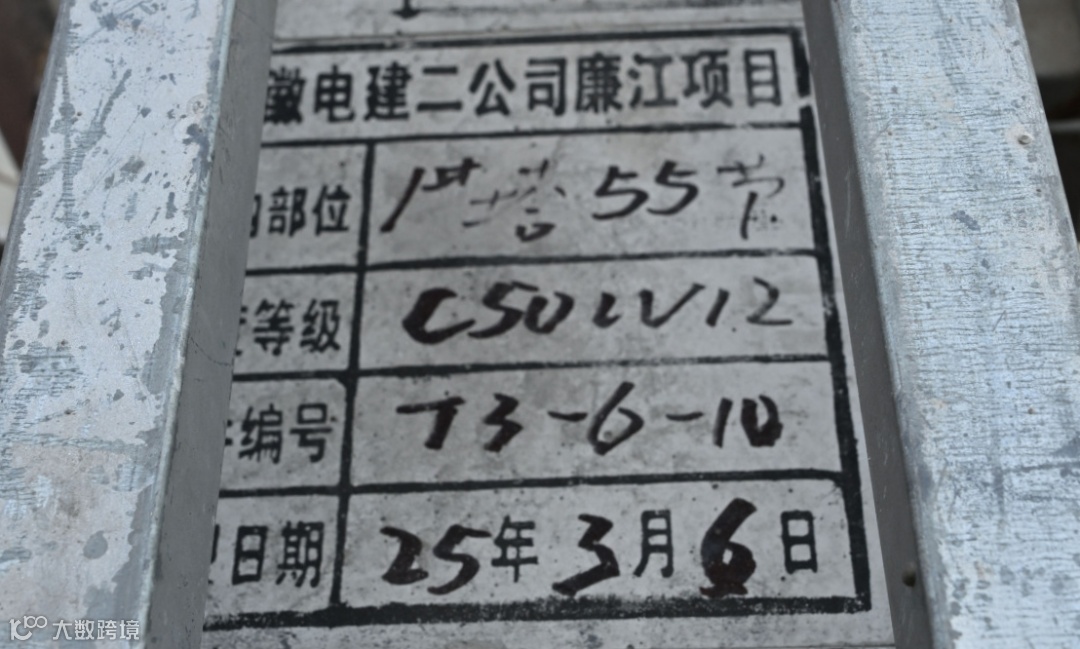 徽电建二公司廉江项目
部位 塔 55节
等级 C50 IV 12
编号 T3-6-10
日期 25年3月6日
大数跨境